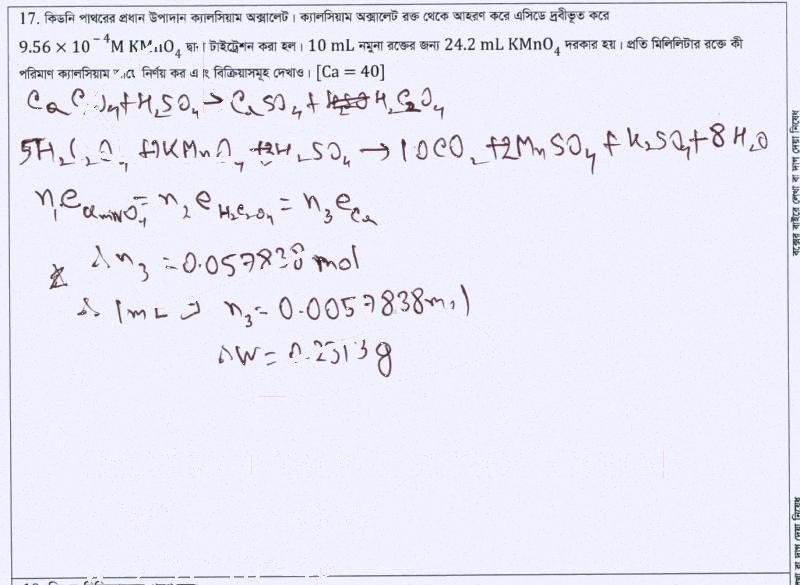 17. কিডনি পাথরের প্রধান উপাদান ক্যালসিয়াম অক্সালেট। ক্যালসিয়াম অক্সালেট রক্ত থেকে আহরণ করে এসিডে দ্রবীভূত করে
9.56 × 10⁻⁴M KMnO₄ দ্বারা টাইট্রেশন করা হল। 10 mL নমুনা রক্তের জন্য 24.2 mL KMnO₄ দরকার হয়। প্রতি মিলিলিটার রক্তে কী
পরিমাণ ক্যালসিয়াম আছে নির্ণয় কর এবং বিক্রিয়াসমূহ দেখাও। [Ca = 40]
CaC₂O₄ + H₂SO₄ → CaSO₄ + H₂C₂O₄
5H₂C₂O₄ + 2KMnO₄ + 3H₂SO₄ → 10CO₂ + 2MnSO₄ + K₂SO₄ + 8H₂O
n₁e = n₂e H₂C₂O₄ = n₃e Ca
n₃ = 0.057838 mol
1mL n₃ = 0.0057838 mol
W = 0.2313 g
বক্সের বাইরে লেখা বা দাগ দেয়া নিষেধ
বা দাগ দেয়া নিষেধ